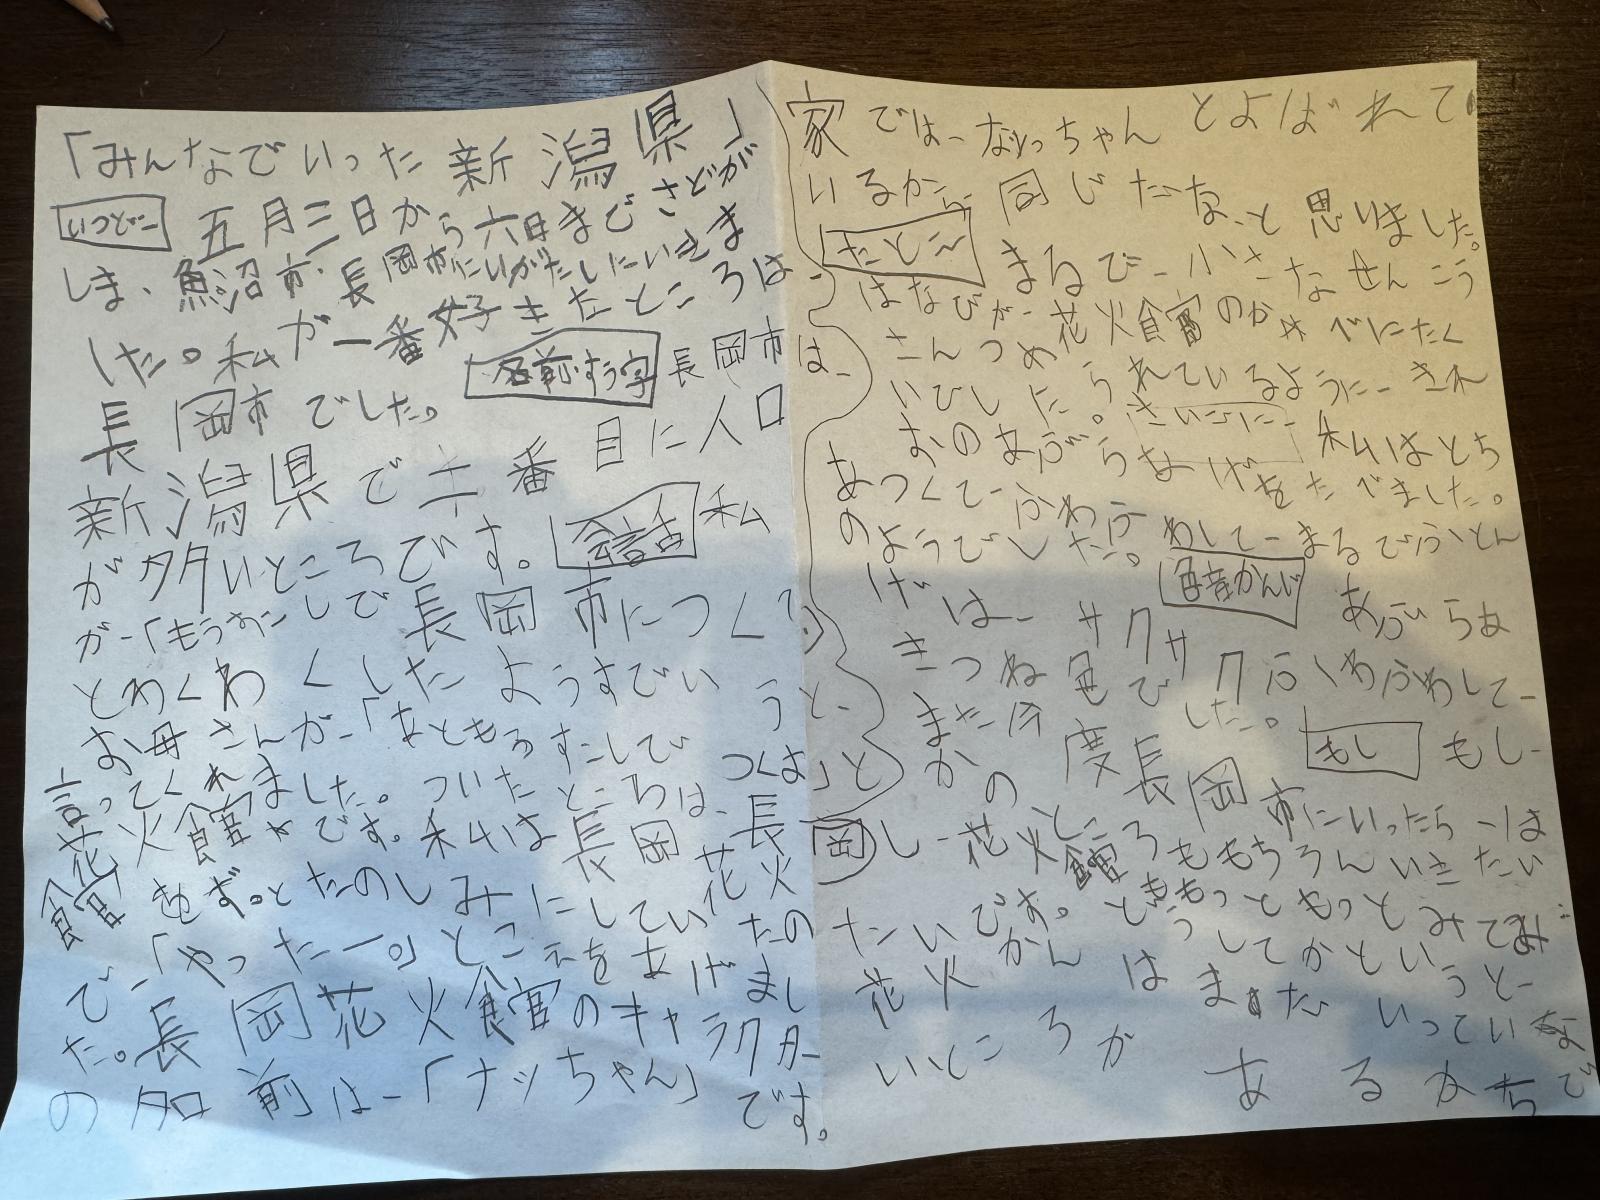 「みんなでいった新潟県」
いつどこ 五月三日から六日までさどが
しま、魚沼市、長岡市にいがたしにいきま
した。私が一番好きたところは、
長岡市でした。 名前・すう字 長岡市は、
新潟県で二番目に人口
が多いところです。 会話 私
が「もうすこしで長岡市につくで
とわくわくしたようすでいうと、
お母さんが「あともうすこしでつくよ」と
言ってくれました。ついたところは、長岡
花火館です。私は長岡花火
館をずっとたのしみにしていたの
で、「やったー。」とこえをあげまし
た。長岡花火館のキャラクター
の名前は「ナッちゃん」です。
家では、なっちゃんとよばれて
いるから同じだな、と思いました。
たとえ まるで、小さなせんこう
はなびが、花火館のかべにたく
さんつめられているように、きれ
いひした。さいごに、私はとち
おのあぶらあげをたべました。
あつくて、ふわふわして、まるでふとん
のようでした。 色音かんじ あぶらあ
げは、サクサクふわふわして、
きつね色でした。 もし もし、
また今度長岡市にいったら、は
かのところももちろんいきたい
し、花火館ももっともっとみてみ
たいです。どうしてかというと、
花火かんはまだいってない
いいところがあるからで